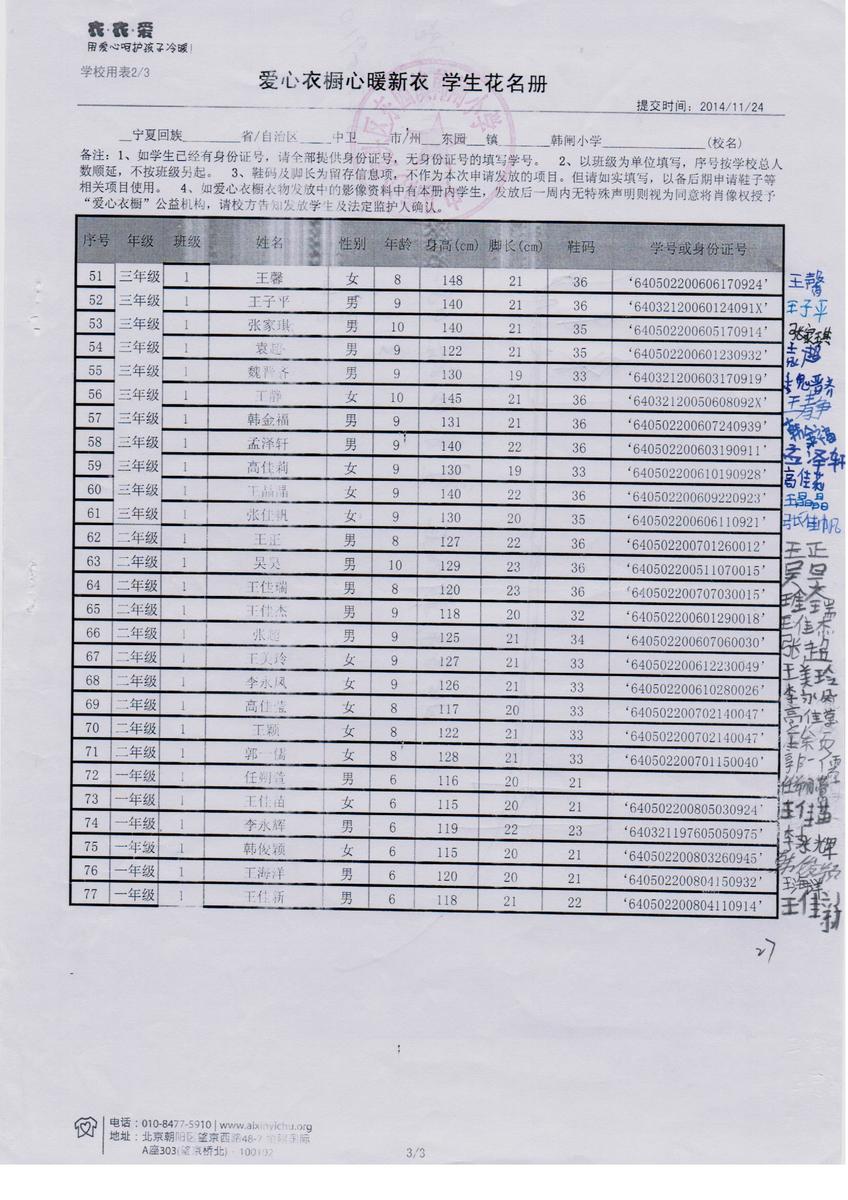 衣·衣·爱
用爱心呵护孩子冷暖!
学校用表2/3
爱心衣橱心暖新衣 学生花名册
提交时间: 2014/11/24
__宁夏回族_______省/自治区_____中卫_____市/州___东园___镇________韩闸小学________________(校名)
备注:1、如学生已经有身份证号,请全部提供身份证号,无身份证号的填写学号。 2、以班级为单位填写,序号按学校总人
数顺延,不按班级另起。 3、鞋码及脚长为留存信息项,不作为本次申请发放的项目。但请如实填写,以备后期申请鞋子等
相关项目使用。 4、如爱心衣橱衣物发放中的影像资料中有本册内学生,发放后一周内无特殊声明则视为同意将肖像权授予
“爱心衣橱”公益机构,请校方告知发放学生及法定监护人确认。
序号 年级 班级 姓名 性别 年龄 身高(cm) 脚长(cm) 鞋码 学号或身份证号
51 三年级 1 王馨 女 8 148 21 36 ‘640502200606170924’ 王馨
52 三年级 1 王子平 男 9 140 21 36 ‘64032120060124091X’ 王子平
53 三年级 1 张家琪 男 10 140 21 35 ‘640502200605170914’ 张家琪
54 三年级 1 袁超 男 9 122 21 35 ‘640502200601230932’ 袁超
55 三年级 1 魏晋齐 男 9 130 19 33 ‘640321200603170919’ 魏晋齐
56 三年级 1 王静 女 10 145 21 36 ‘64032120050608092X’ 王静
57 三年级 1 韩金福 男 9 131 21 36 ‘640502200607240939’ 韩金福
58 三年级 1 孟泽轩 男 9 140 22 36 ‘640502200603190911’ 孟泽轩
59 三年级 1 高佳莉 女 9 130 19 33 ‘640502200610190928’ 高佳莉
60 三年级 1 王晶晶 女 9 140 22 36 ‘640502200609220923’ 王晶晶
61 三年级 1 张佳帆 女 9 130 20 35 ‘640502200606110921’ 张佳帆
62 二年级 1 王正 男 8 127 22 36 ‘640502200701260012’ 王正
63 二年级 1 吴昊 男 10 129 23 36 ‘640502200511070015’ 吴昊
64 二年级 1 王佳瑞 男 8 120 23 36 ‘640502200707030015’ 王佳瑞
65 二年级 1 王佳杰 男 9 118 20 32 ‘640502200601290018’ 王佳杰
66 二年级 1 张超 男 9 125 21 34 ‘640502200607060030’ 张超
67 二年级 1 王美玲 女 9 127 21 33 ‘640502200612230049’ 王美玲
68 二年级 1 李永凤 女 9 126 21 33 ‘640502200610280026’ 李永凤
69 二年级 1 高佳莹 女 8 117 20 33 ‘640502200702140047’ 高佳莹
70 二年级 1 王颖 女 8 122 21 33 ‘640502200702140047’
71 二年级 1 郭一儒 女 8 128 21 33 ‘640502200701150040’ 郭一儒
72 一年级 1 任朔萱 男 6 116 20 21 任朔萱
73 一年级 1 王佳苗 女 6 115 20 21 ‘640502200805030924’ 王佳苗
74 一年级 1 李永辉 男 6 119 22 23 ‘640321197605050975’ 李永辉
75 一年级 1 韩俊颖 女 6 115 20 21 ‘640502200803260945’ 韩俊颖
76 一年级 1 王海洋 男 6 120 20 21 ‘640502200804150932’ 王海洋
77 一年级 1 王佳新 男 6 118 21 22 ‘640502200804110914’ 王佳新
27
电话:010-8477-5910 | www.aixinyichu.org
地址:北京朝阳区望京西路48-7 国际
A座303(望京桥北)· 100102
3/3